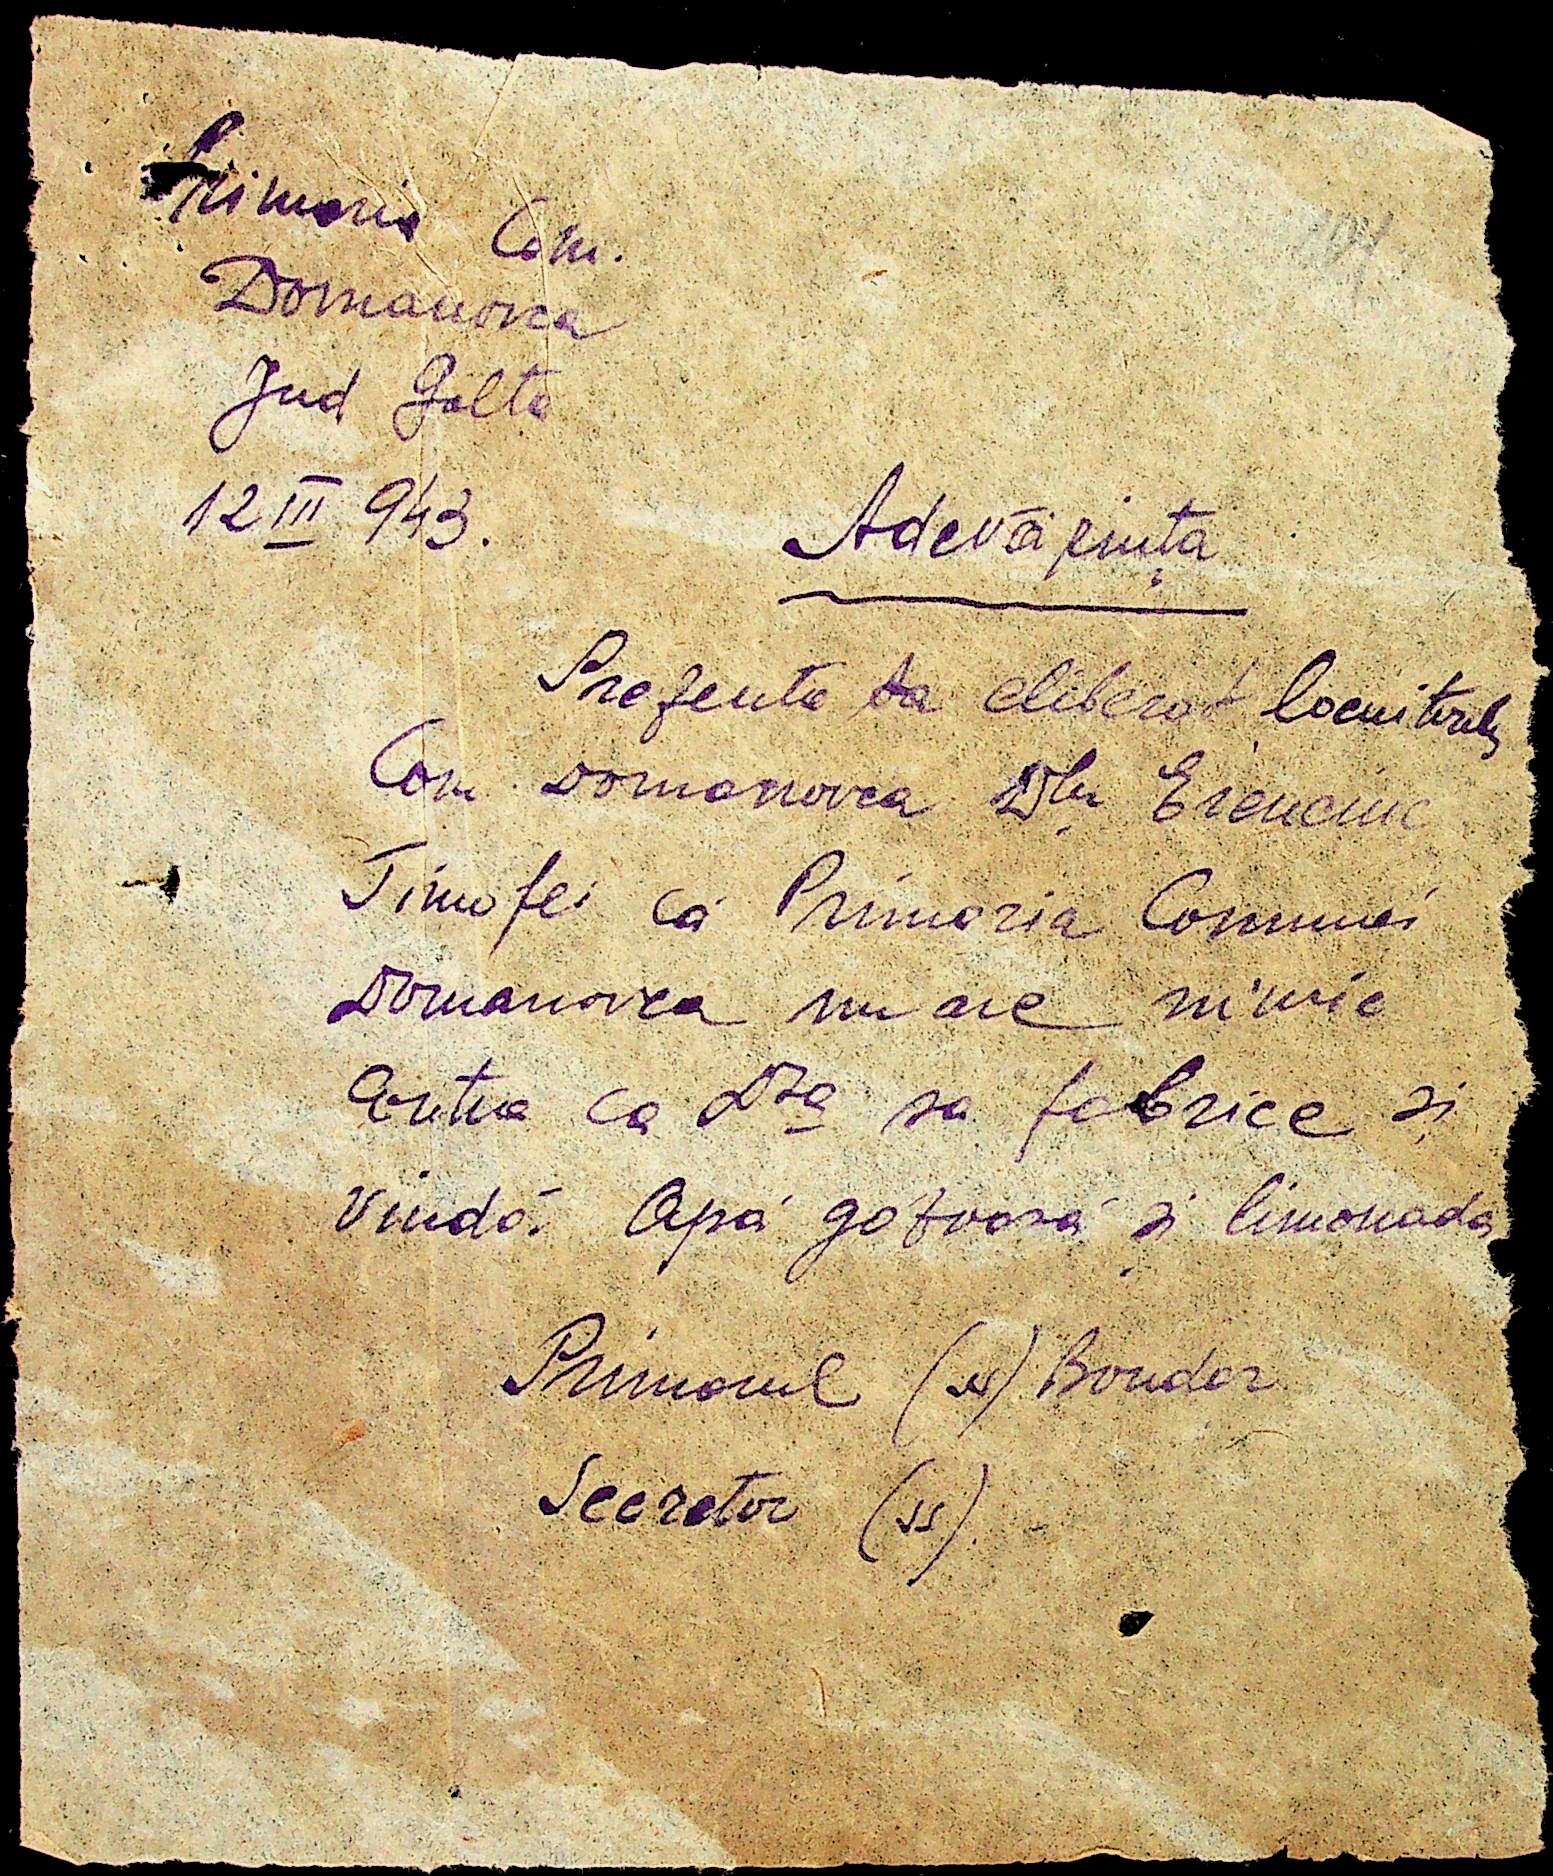 Primaria Com.
Domanovca
Jud Golta
12 III 943.
Adevărința
Prezenta sa eliberat locuitorului
Com. Domanovca Dlu
Timofei că Primaria Comunei
Domanovca nu are nimic
contra ca Dsa sa fabrice și
vindă. Apă gazoasă și limonada
Primarul (ss) Bondar
Secretar (ss).